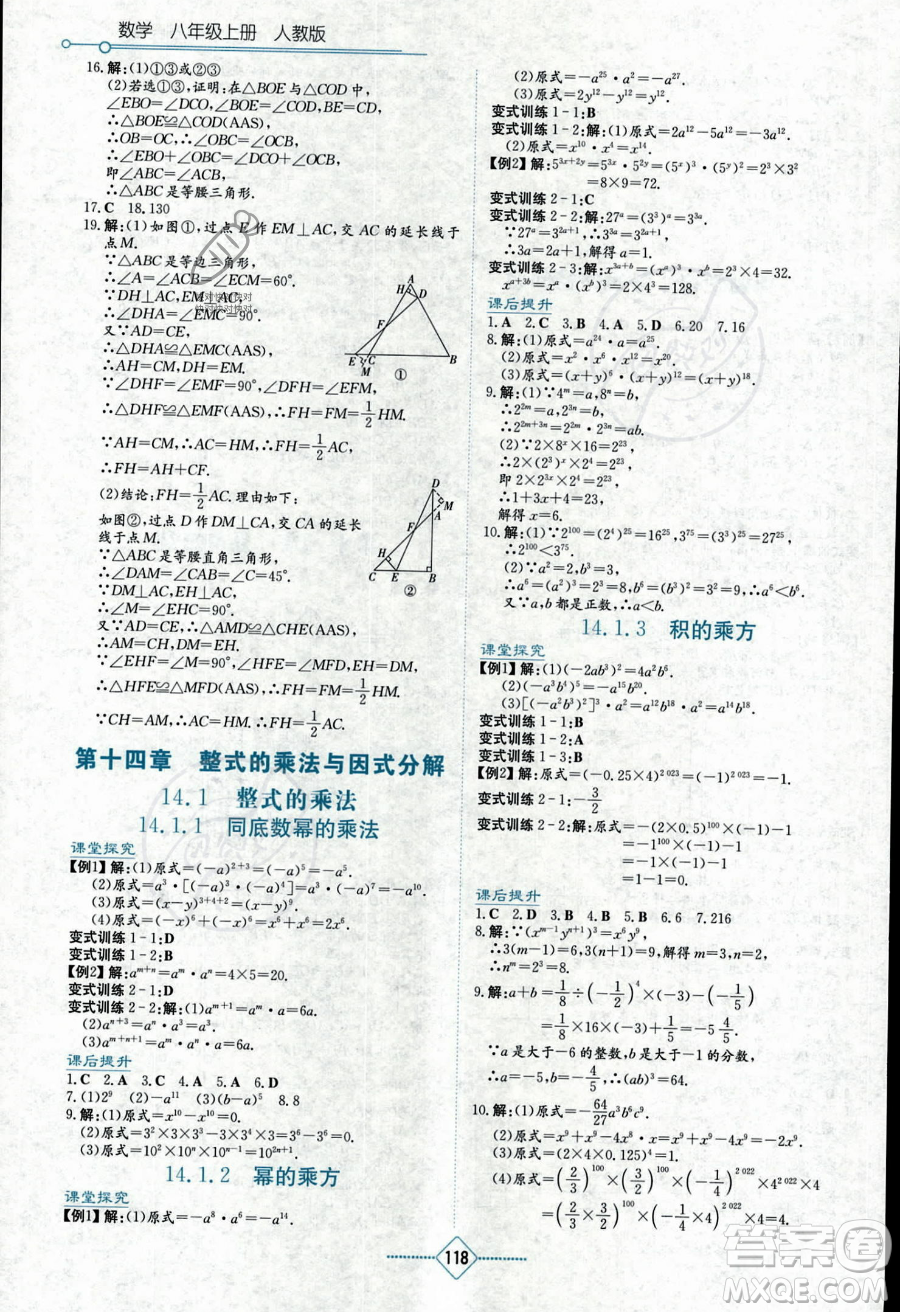 数学 八年级上册 人教版
16.解:(1)①③或②③
(2)若选①③,证明:在△BOE与△COD中,
∠EBO=∠DCO,∠BOE=∠COD,BE=CD,
∴△BOE≌△COD(AAS),
∴OB=OC,∴∠OBC=∠OCB,
∴∠EBO+∠OBC=∠DCO+∠OCB,
即∠ABC=∠ACB,
∴△ABC是等腰三角形.
17.C 18.130
19.解:(1)如图①,过点E作EM⊥AC,交AC的延长线于
点M.
∵△ABC是等边三角形,
∴∠A=∠ACB=∠ECM=60°.
∵DH⊥AC,EM⊥AC,
∴∠AHD=∠CME=90°.
又∵AD=CE,
∴△DHA≌△EMC(AAS),
∴AH=CM,DH=EM.
∵∠DHF=∠EMF=90°,∠DFH=∠EFM,
∴△DHF≌△EMF(AAS),∴FH=FM=1/2HM.
∵AH=CM,∴HM=AC,∴FH=1/2AC,
∴FH=AH+CF.
(2)结论:FH=1/2AC.理由如下:
如图②,过点D作DM⊥CA,交CA的延长
线于点M.
∵△ABC是等腰直角三角形,
∴∠DAM=∠CAB=∠C=45°.
∵DM⊥AC,EH⊥AC,
∴∠M=∠EHC=90°.
又∵AD=CE,∴△DMA≌△CHE(AAS),
∴AM=CH,DM=EH.
∵∠M=∠EHF=90°,∠DFM=∠EFH,
∴△HFE≌△MFD(AAS),∴FH=FM=1/2HM.
∵CH=AM,∴AC=HM,∴FH=1/2AC.
第十四章 整式的乘法与因式分解
14.1 整式的乘法
14.1.1 同底数幂的乘法
课堂探究
【例1】解:(1)原式=(-a)²⁺³=(-a)⁵=-a⁵.
(2)原式=a³·[-(-a)³]=a³·a³=a⁶.
(3)原式=(-x)³⁺⁴⁺²=(-x)⁹=-x⁹.
(4)原式=(-x)⁶+(-x)⁶=x⁶+x⁶=2x⁶.
变式训练1-1:D
【例2】解:aᵐ⁺ⁿ=aᵐ·aⁿ=4×5=20.
变式训练2-1:D
变式训练2-2:解:(1)aᵐ⁺¹=aᵐ·a=6a.
(2)aⁿ⁺³=aⁿ·a³=5a³.
(3)aᵐ⁺ⁿ⁺¹=aᵐ·aⁿ·a=6×5×a=30a.
课后提升
1.C 2.A 3.B 4.A 5.A 6.D
7.(1)a⁹ (2)-a¹¹ (3)(a-b)⁵ 8.8
9.解:(1)原式=x¹⁰-x¹⁰=0.
(2)原式=3²×3×3³-3²×3⁴=3⁶-3⁶=0.
(3)原式=10²×10ⁿ×10ⁿ⁻¹=10²ⁿ⁺¹.
14.1.2 幂的乘方
课堂探究
【例1】解:(1)原式=-a⁸·a⁶=-a¹⁴.
(2)原式=-a²⁵·a²=-a²⁷.
(3)原式=2y¹²-y¹²=y¹².
变式训练1-1:B
变式训练1-2:解:(1)原式=2a¹²-5a¹²=-3a¹².
(2)原式=x¹⁰·x⁴=x¹⁴.
【例2】解:5³ˣ⁺²ʸ=5³ˣ·5²ʸ=(5ˣ)³·(5ʸ)²=2³×3²
=8×9=72.
变式训练2-1:C
变式训练2-2:解:27ᵃ=(3³)ᵃ=3³ᵃ.
∵27ᵃ=3²ᵃ⁺¹,∴3³ᵃ=3²ᵃ⁺¹,
∴3a=2a+1,解得a=1.
变式训练2-3:解:xᵃ⁺ᵇ=xᵃ·xᵇ=4×8=32.
x²ᵃ⁺ᵇ=(xᵃ)²·xᵇ=4²×8=128.
课后提升
1.A 2.C 3.B 4.A 5.D 6.20 7.16
8.解:(1)原式=a²⁴·a=a²⁵.
(2)原式=x²·x⁶·x¹²=x²⁰.
(3)原式=(x+y)⁶·(x+y)¹²=(x+y)¹⁸.
9.解:(1)∵4ᵐ=a,8ⁿ=b,
∴2²ᵐ=a,2³ⁿ=b,
∴2²ᵐ⁺³ⁿ=2²ᵐ·2³ⁿ=ab.
(2)∵2×8ˣ×16=2²³,
∴2×(2³)ˣ×2⁴=2²³,
即2×2³ˣ×2⁴=2²³,
∴1+3x+4=23,
解得x=6.
10.解:(1)∵2¹⁰⁰=(2⁴)²⁵=16²⁵,3⁷⁵=(3³)²⁵=27²⁵,
∴2¹⁰⁰<3⁷⁵.
(2)∵a²=2,b³=3,
∴a⁶=(a²)³=2³=8,b⁶=(b³)²=3²=9,∴a⁶<b⁶.
又∵a,b都是正数,∴a<b.
14.1.3 积的乘方
课堂探究
【例1】解:(1)(-2ab³)²=4a²b⁶.
(2)(-a³b⁴)⁵=-a¹⁵b²⁰.
(3)[(-a²b³)²]³=(a⁴b⁶)³=a¹²b¹⁸.
变式训练1-1:B
变式训练1-2:A
变式训练1-3:B
【例2】解:(-0.25×4)²⁰²³=(-1)²⁰²³=-1.
变式训练2-1:-3/2
变式训练2-2:解:原式=-(2×0.5)¹⁰⁰+(-1)⁹⁹
=-1¹⁰⁰+(-1)⁹⁹
=-1-1=-2.
课后提升
1.C 2.D 3.A 4.D 5.B 6.6 7.216
8.解:∵(xᵐ⁻¹yⁿ⁺¹)³=x⁶y⁹,
∴3(m-1)=6,3(n+1)=9,解得m=3,n=2,
∴nᵐ=2³=8.
9.解:a+b=1/8÷(-1/2)⁴×(-4)×(-1/5)
=1/8×16×(-4)×(-1/5)=8/5.
∵a是大于-6的整数,b是大于1的分数,
∴a=-5,∴-5+b=8/5,∴b=33/5.
10.解:(1)原式=-64/27a³b⁶c⁹.
(2)原式=x⁹+x⁹-4x⁹=-2x⁹.
(3)原式=(2×4×0.125)⁴=1.
(4)原式=(2/3)¹⁰⁰×(3/2)¹⁰⁰×(1/4)²⁰²²×4²⁰²²
=(2/3×3/2)¹⁰⁰×(1/4×4)²⁰²²
118
答案圈
MXQE.COM